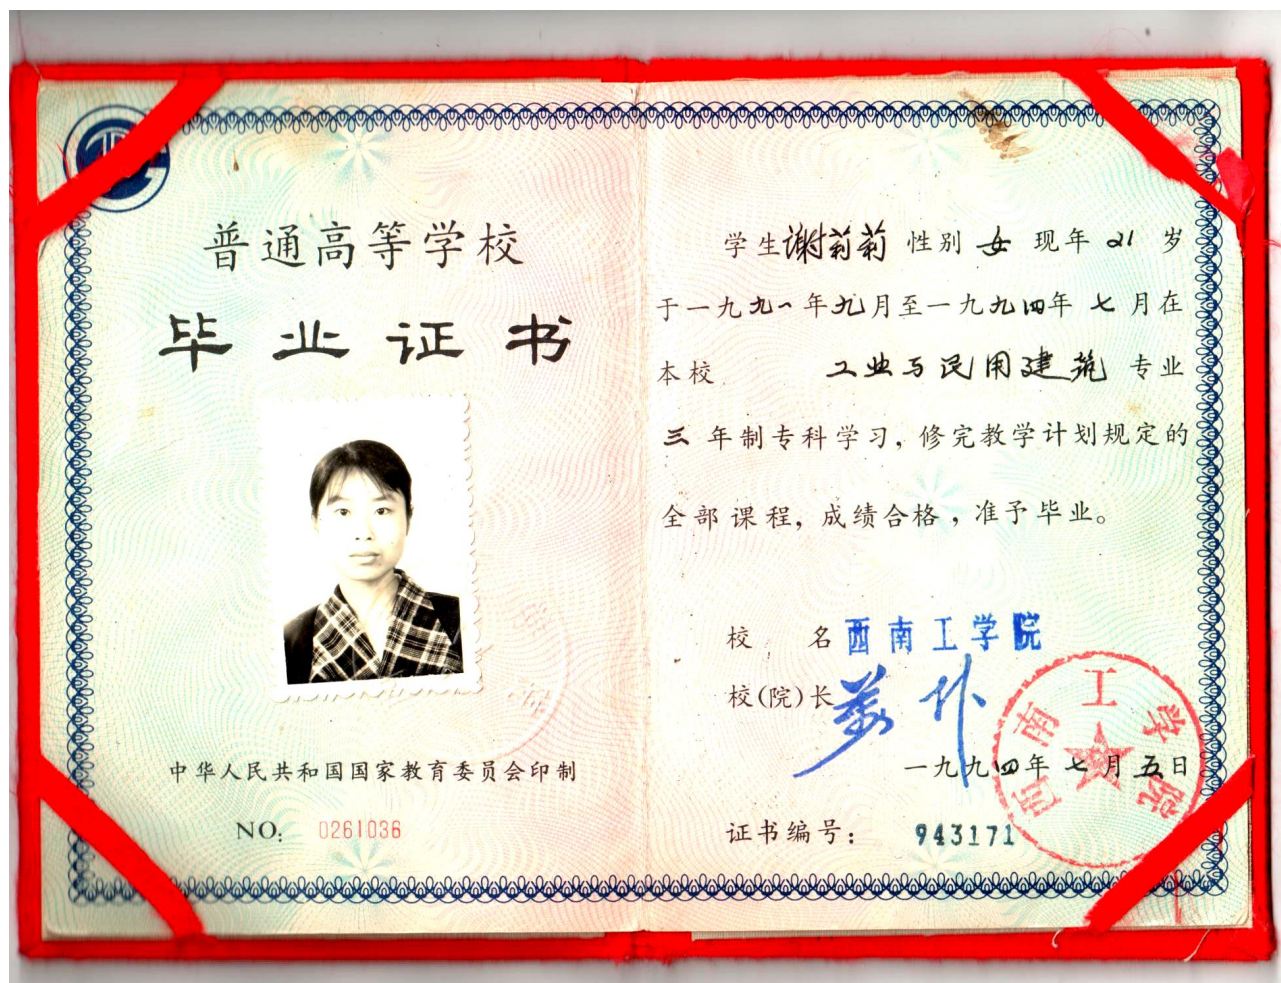 普通高等学校
毕业证书
中华人民共和国国家教育委员会印制
NO: 0261036
学生谢莉莉 性别 女 现年 21 岁
于一九九一年九月至一九九四年 七 月在
本校 工业与民用建筑 专业
三 年制专科学习,修完教学计划规定的
全部课程,成绩合格,准予毕业。
校 名 西南工学院
校(院)长
一九九四年七月五日
证书编号: 943171
西南工学院